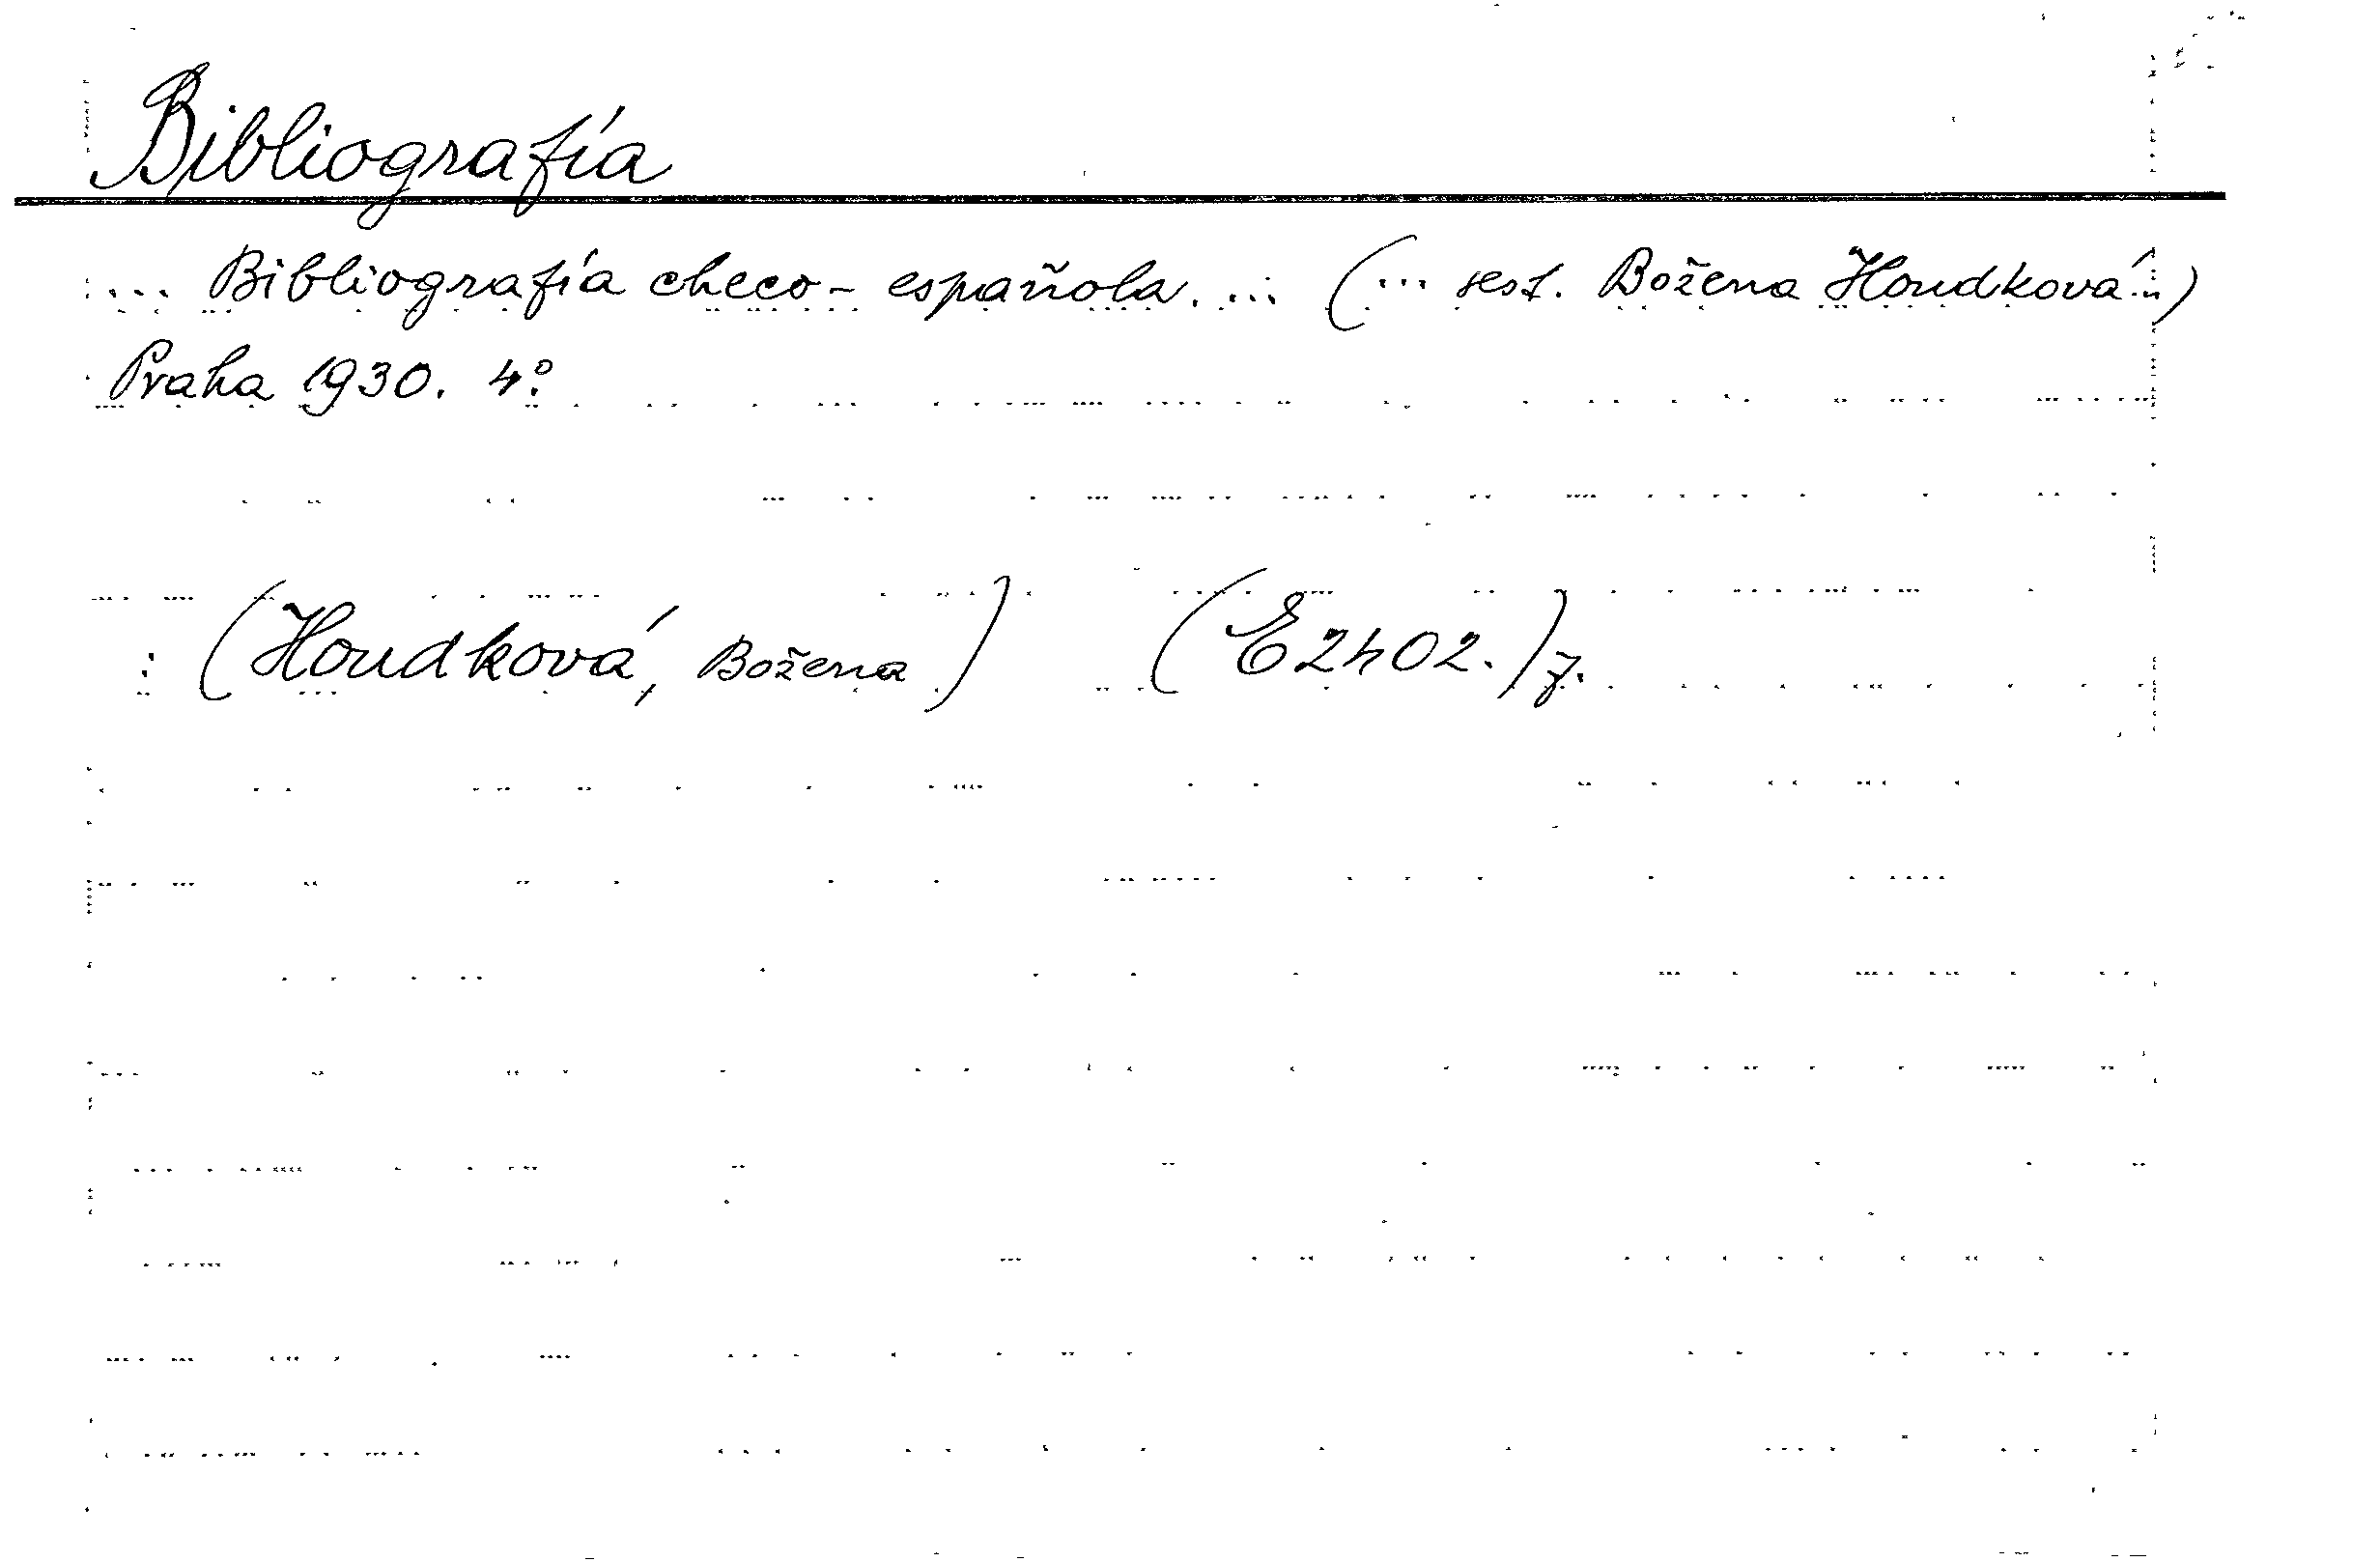 Bibliografía
... Bibliografía checo-española. ... (... sest. Božena Houdková...)
Praha 1930. 4°.
: (Houdková, Božena) (E2402.)7.